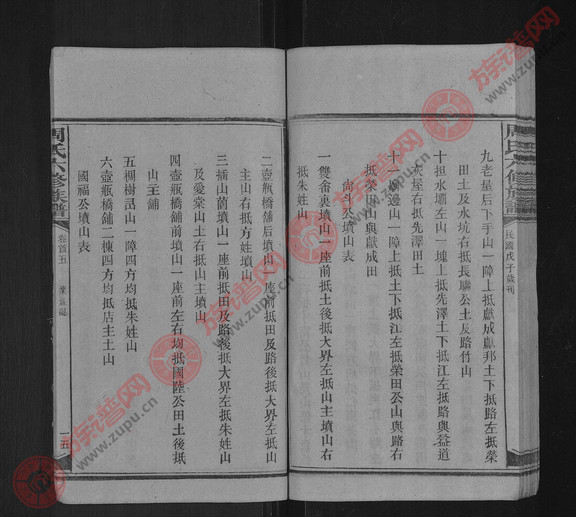 周氏六修族譜
民國戊子歲刊
九老屋后下手山一障上抵獻成獻邦土下抵路左抵榮
田土及水坑右抵長聯公土及路竹山
十担水壩左山一塊上抵先澤土下抵江左抵路與益道
灰屋右抵先澤田土
邊山一障上抵土下抵江左抵榮田公山與路右
抵榮田山與獻成田
尙斗公墳山表
一雙畬裏墳山一座前抵土後抵大界左抵山主墳山右
抵朱姓山
二壺瓶橋舖后墳山一座前抵田及路後抵大界左抵山
主山右抵方姓墳山
三插山墳山一座前抵田及路後抵大界左抵朱姓山
及愛棠山土右抵山主墳山
四壺瓶橋舖前墳山一座前左右均抵國陸公田土後抵
山主舖
五棵樹山一障四方均抵朱姓山
六壺瓶橋舖二棟四方均抵店主土山
國福公墳山表
周氏六修族譜
卷首五
一五
族譜网
www.zupu.cn
族譜网
www.zupu.cn
族譜网
www.zupu.cn